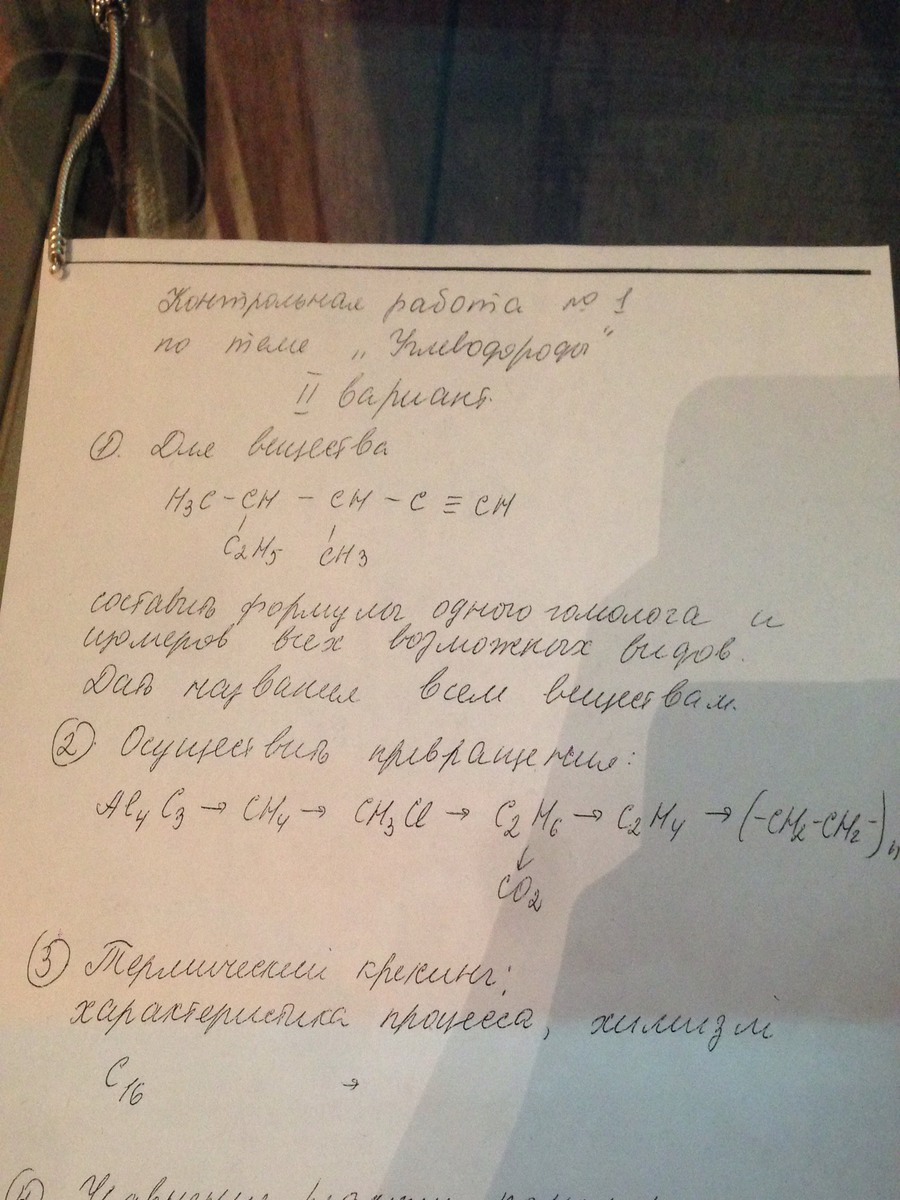 Контрольная работа № 1
по теме „Углеводороды"
II вариант.
①. Для вещества
H₃C - CH - CH - C ≡ CH
C₂H₅ CH₃
составить формулы одного гомолога и
изомеров всех возможных видов.
Дать названия всем веществам.
②. Осуществить превращения:
Al₄C₃ → CH₄ → CH₃Cl → C₂H₆ → C₂H₄ → (-CH₂-CH₂-)ₙ
↓
CO₂
③ Термический крекинг:
характеристика процесса, химизм
C₁₆ →